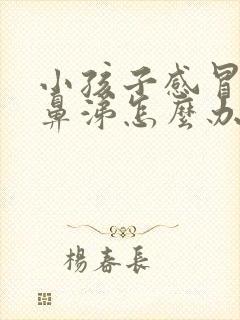 小孩子感冒
鼻涕怎麼办
楊春長